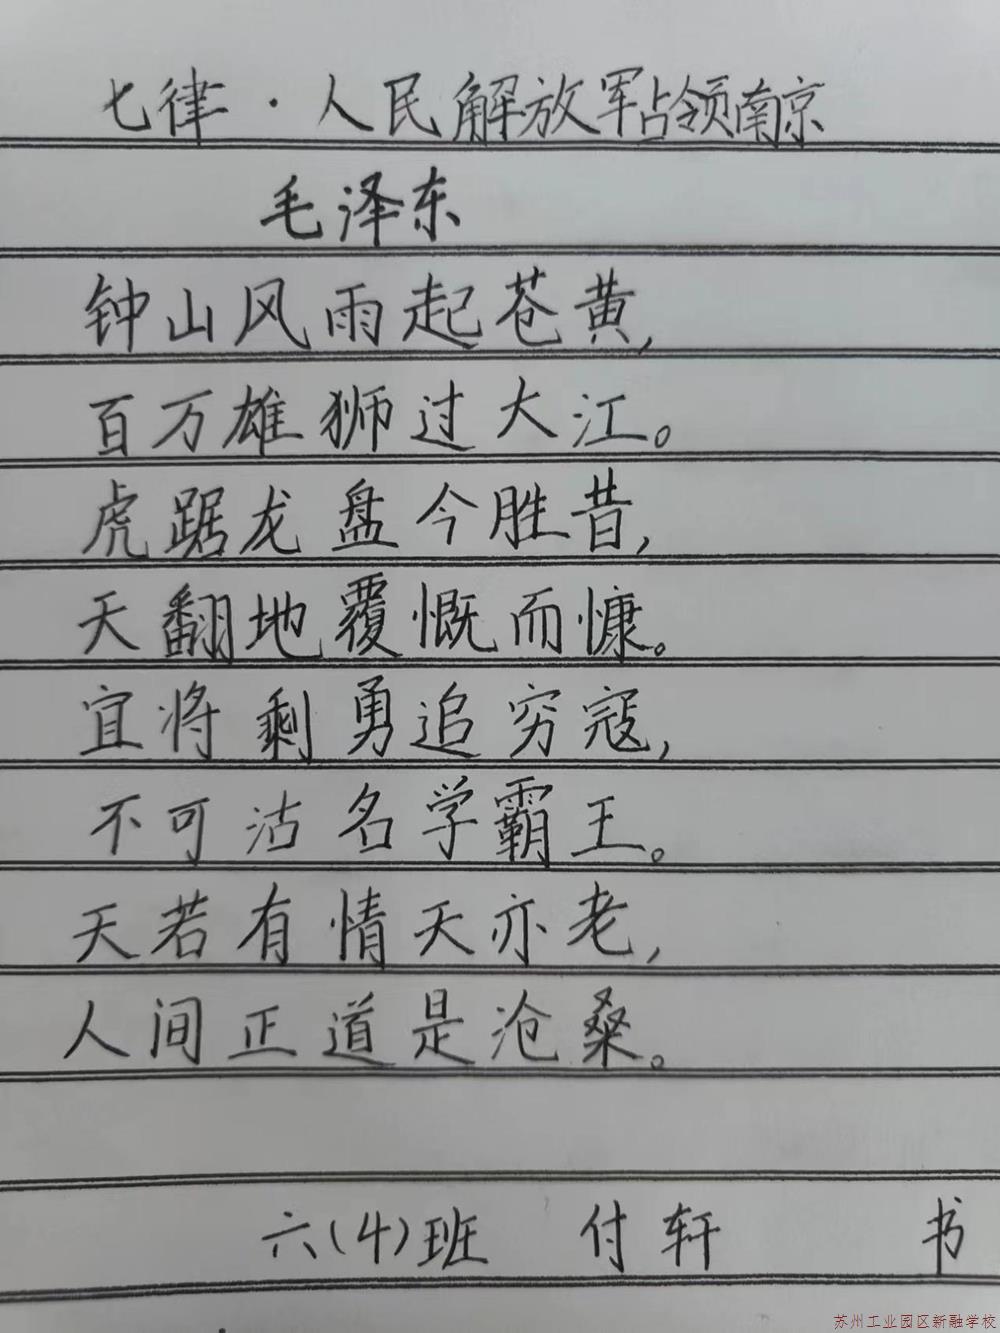 七律·人民解放军占领南京
毛泽东
钟山风雨起苍黄,
百万雄狮过大江。
虎踞龙盘今胜昔,
天翻地覆慨而慷。
宜将剩勇追穷寇,
不可沽名学霸王。
天若有情天亦老,
人间正道是沧桑。
六(4)班 付轩 书
苏州工业园区新融学校